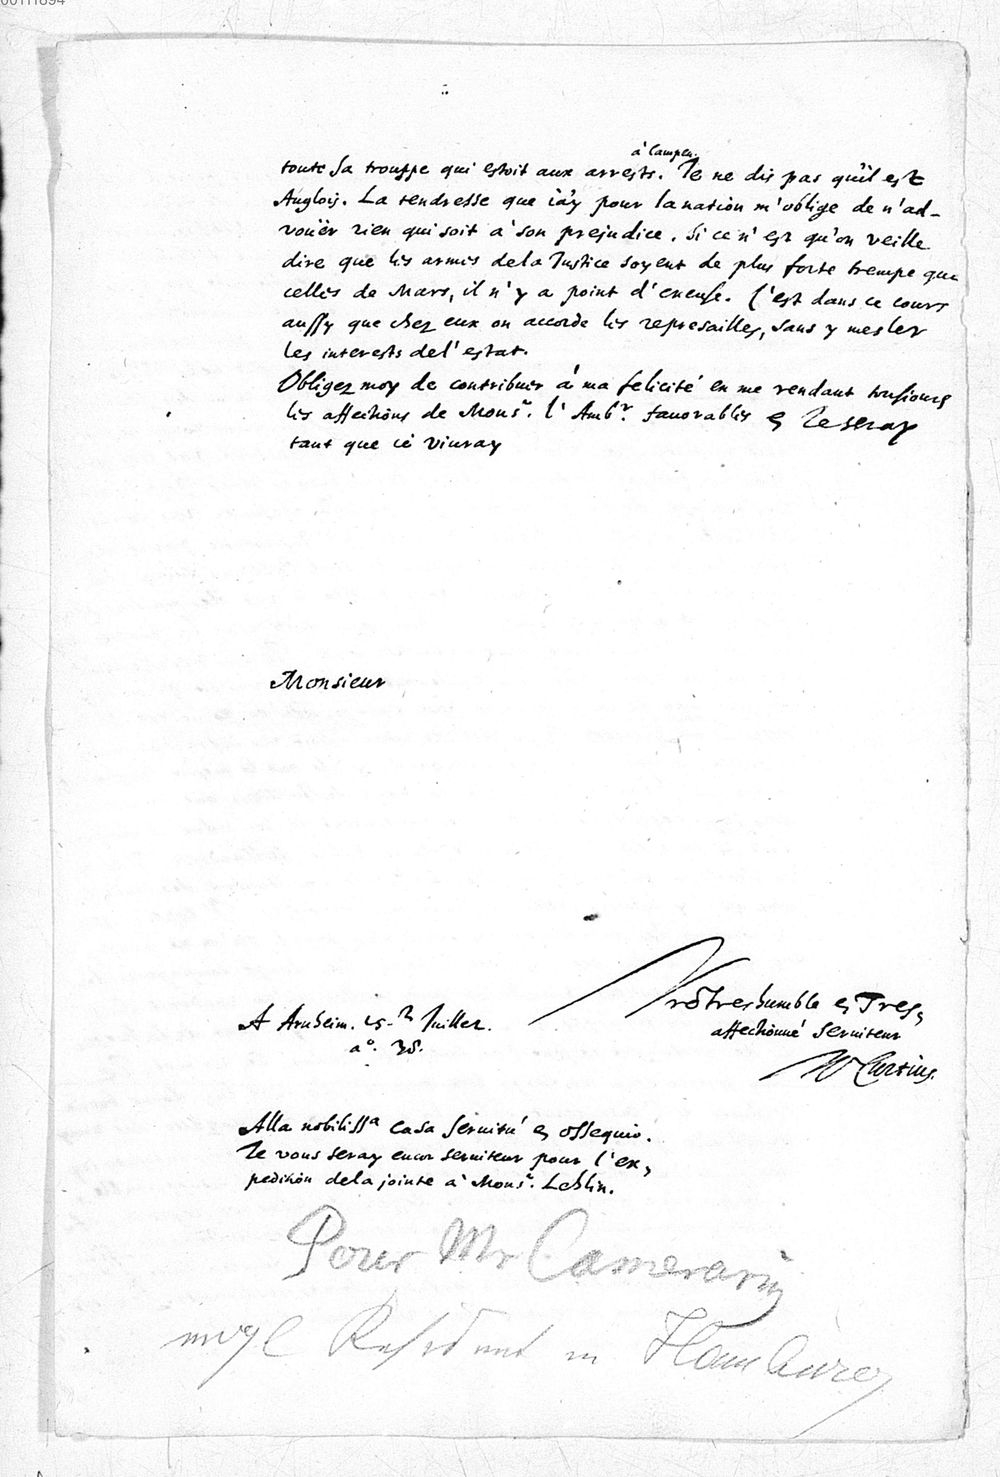 00111894
à Campen.
toute sa trouppe qui estoit aux arrests. Je ne dis pas qu'il est
Anglois. La tendresse que i'ay pour la nation m'oblige de n'ad-
voüer rien qui soit à son prejudice. Si ce n'est qu'on veille
dire que les armes de la Justice soyent de plus forte trempe que
celles de Mars, il n'y a point d'excuse. C'est dans ce cours
aussy que chez eux on accorde les represailles, sans y mesler
les interests de l'estat.
Obligez moy de contribuer à ma felicité en me rendant tousiours
les affections de Monsr. l'Ambr. favorables & Je seray
tant que ie vivray
Monsieur
Vostre humble & Tres,
affectionné serviteur
W Curtius.
A Arnheim. Juillet.
ao. 38.
Alla nobilissa casa servitù & ossequio.
Je vous seray encor serviteur pour l'ex,
pedition de la jointe à Monsr.
Pour Mr Camerarius
Resident in Hamburg